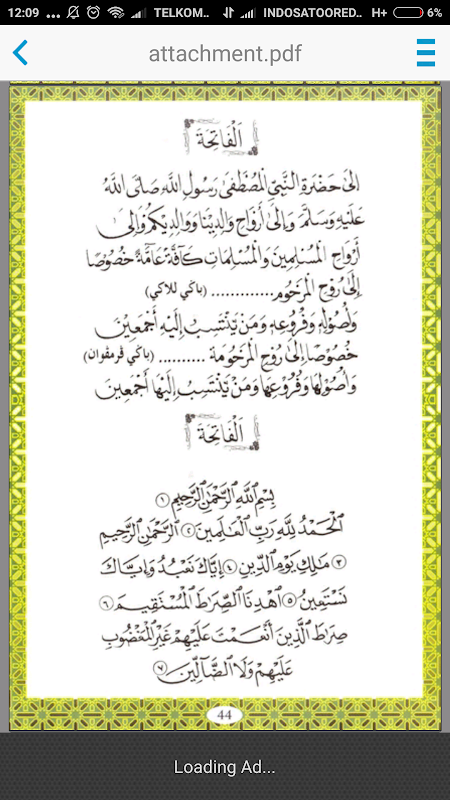 12:09 ... TELKOM.. INDOSATOORED.. H+ 6%
attachment.pdf
اَلْفَاتِحَةَ
اِلَى حَضْرَةِ النَّبِيِّ الْمُصْطَفَى رَسُولِ اللّٰهِ صَلَّى اللّٰهُ
عَلَيْهِ وَسَلَّمَ وَاِلَى أَرْوَاحِ وَالِدِيْنَا وَوَالِدِيْكُمْ وَاِلَى
أَرْوَاحِ الْمُسْلِمِيْنَ وَالْمُسْلِمَاتِ كَآفَّةً عَآمَّةً خُصُوْصًا
إِلَى رُوْحِ الْمَرْحُوْمِ ............. (باكي للاكي)
وَأُصُوْلِهِ وَفُرُوْعِهِ وَمَنْ يَنْتَسِبُ إِلَيْهِ أَجْمَعِيْنَ
خُصُوْصًا إِلَى رُوْحِ الْمَرْحُوْمَةِ .......... (باكي ڤرمڤوان)
وَأُصُوْلِهَا وَفُرُوْعِهَا وَمَنْ يَنْتَسِبُ إِلَيْهَا أَجْمَعِيْنَ
اَلْفَاتِحَةَ
بِسْمِ اللّٰهِ الرَّحْمٰنِ الرَّحِيْمِ ١
اَلْحَمْدُ لِلّٰهِ رَبِّ الْعٰلَمِيْنَ ٢ الرَّحْمٰنِ الرَّحِيْمِ
٣ مٰلِكِ يَوْمِ الدِّيْنِ ٤ إِيَّاكَ نَعْبُدُ وَإِيَّاكَ
نَسْتَعِيْنُ ٥ اهْدِنَا الصِّرَاطَ الْمُسْتَقِيْمَ ٦
صِرَاطَ الَّذِيْنَ أَنْعَمْتَ عَلَيْهِمْ غَيْرِ الْمَغْضُوْبِ
عَلَيْهِمْ وَلَا الضَّآلِّيْنَ ٧
44
Loading Ad...